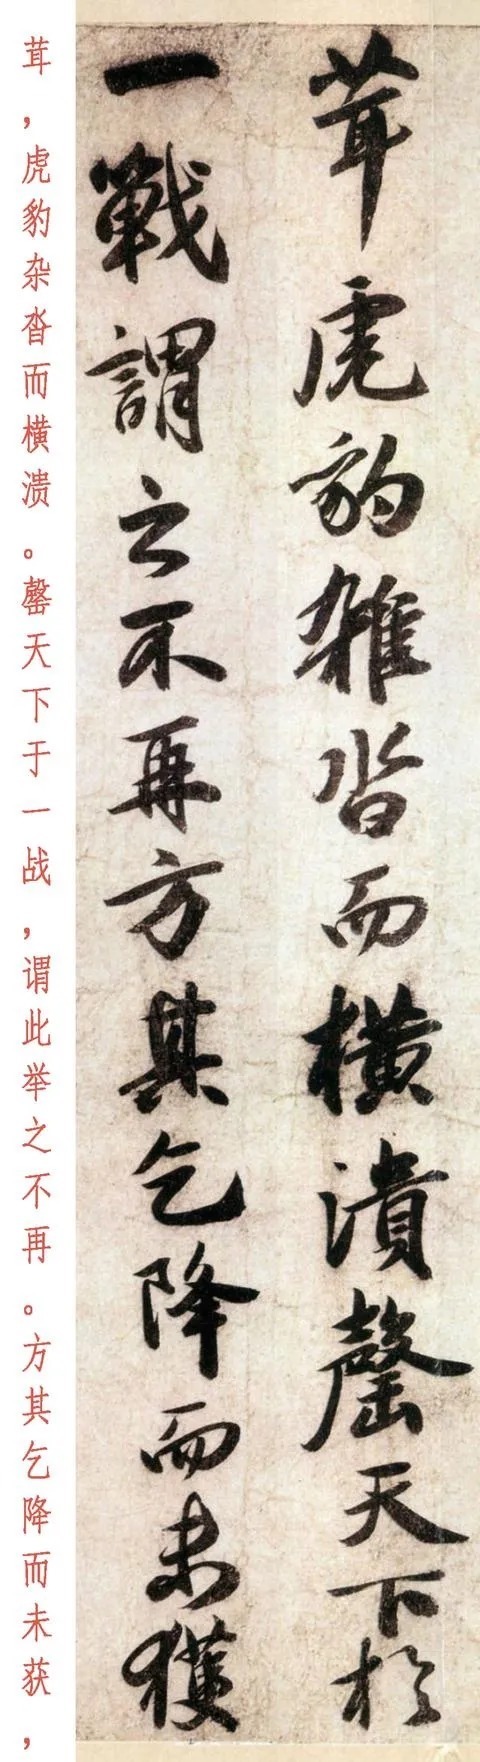 茸虎豹雜沓而橫潰罄天下於
一戰謂之不再方其乞降而未獲
茸，虎豹杂沓而横溃。罄天下于一战，谓此举之不再。方其乞降而未获，